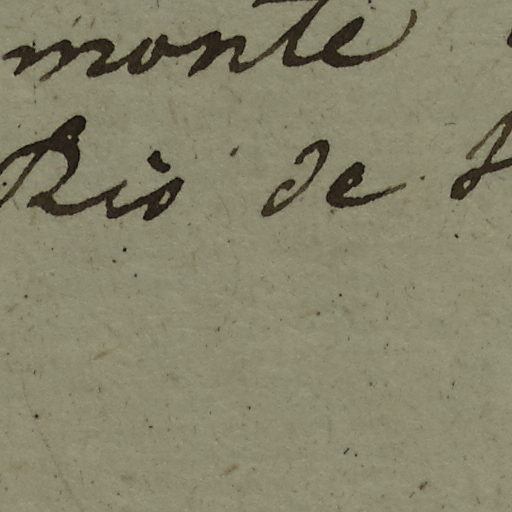 monte
Rio de